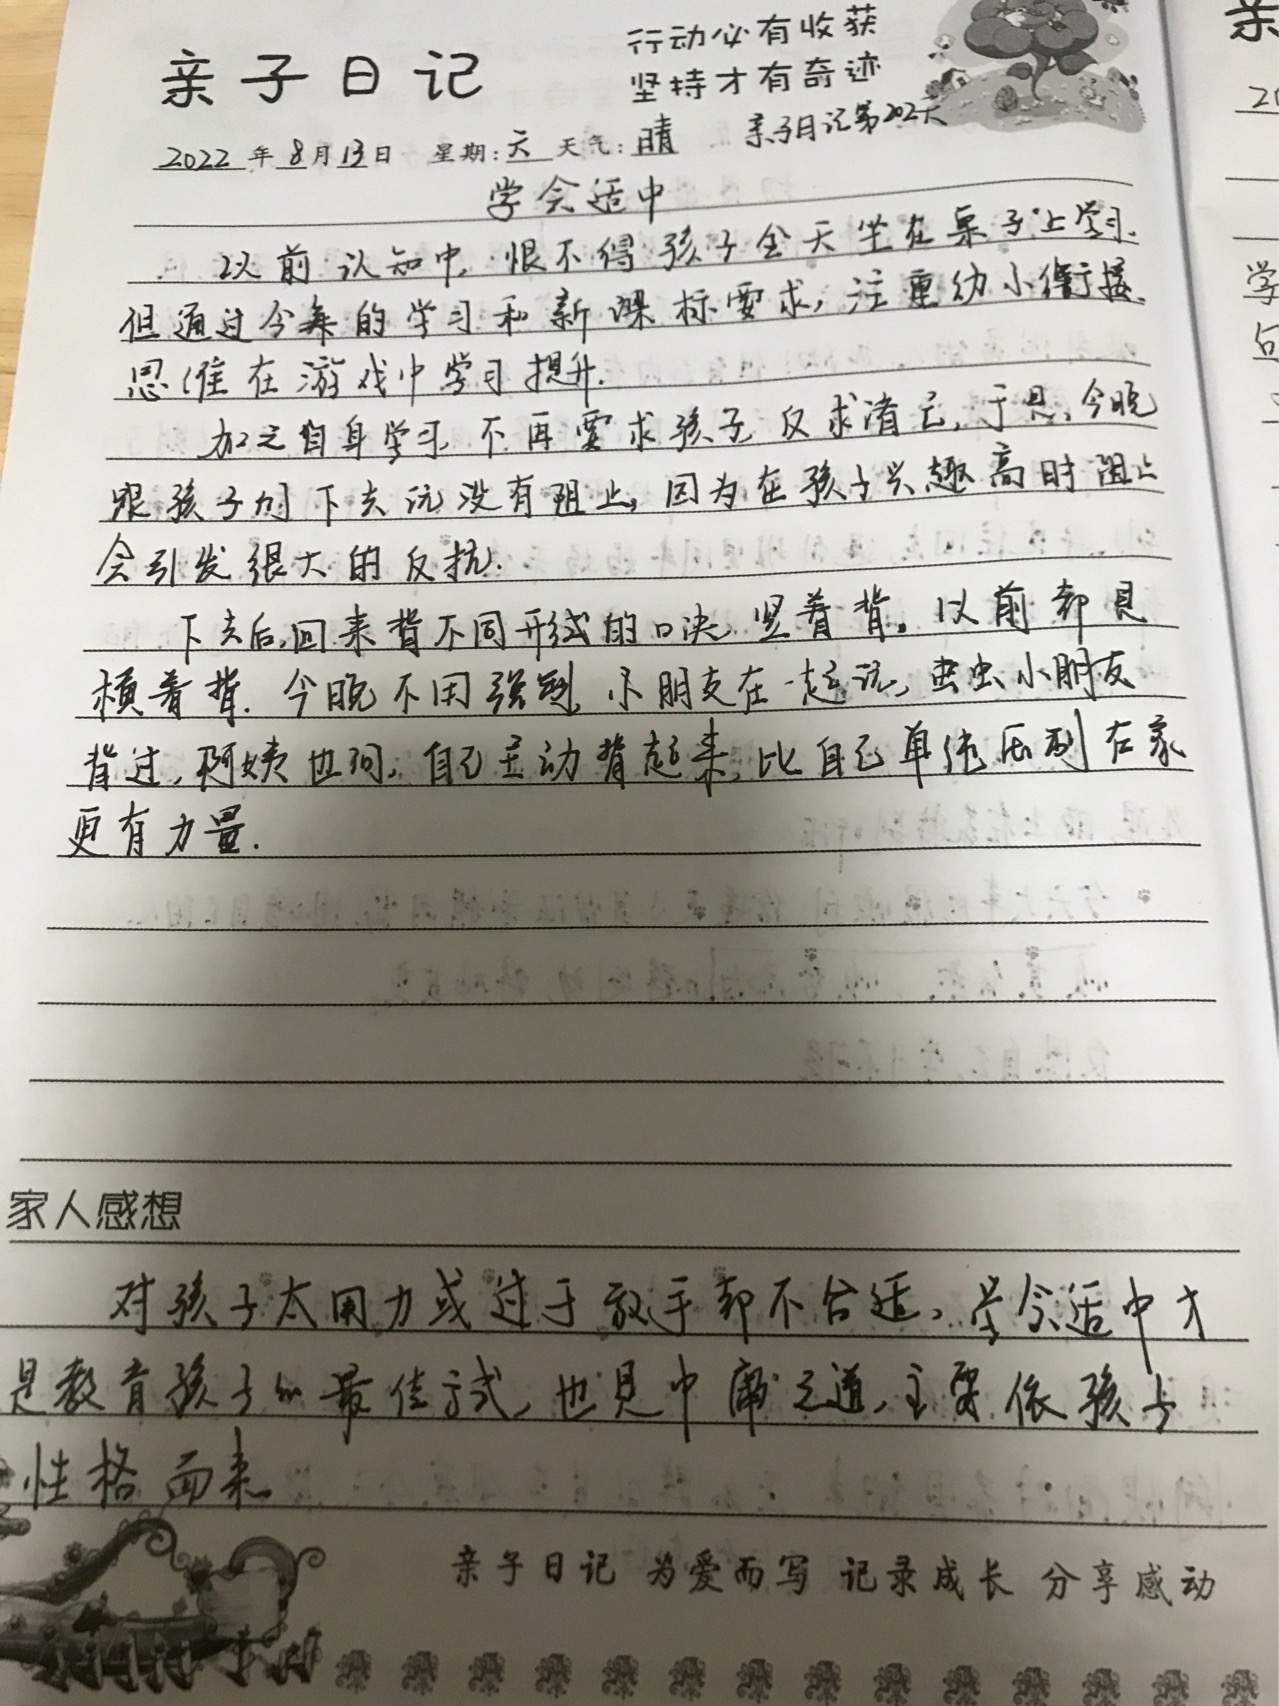 亲子日记
行动必有收获
坚持才有奇迹
亲子日记第202天
2022年8月13日 星期:六 天气:晴
学会适中
以前认知中,恨不得孩子全天坐在桌子上学习.
但通过今年的学习和新课标要求,注重幼小衔接.
思维在游戏中学习提升.
加之自身学习,不再要求孩子,反求诸己,于是,今晚
跟孩子们下去玩没有阻止,因为在孩子兴趣高时阻止
会引发很大的反抗.
下去后,回来背不同形式的口诀,竖着背。以前都是
横着背.今晚不用强制,小朋友在一起玩,虫虫小朋友
背过,阿姨也问,自己主动背起来,比自己单纯压到在家
更有力量.
家人感想
对孩子太用力或过于放手都不合适,学会适中才
是教育孩子的最佳方式,也是中庸之道,主要依孩子
性格而来。
亲子日记 为爱而写 记录成长 分享感动
亲
学
句